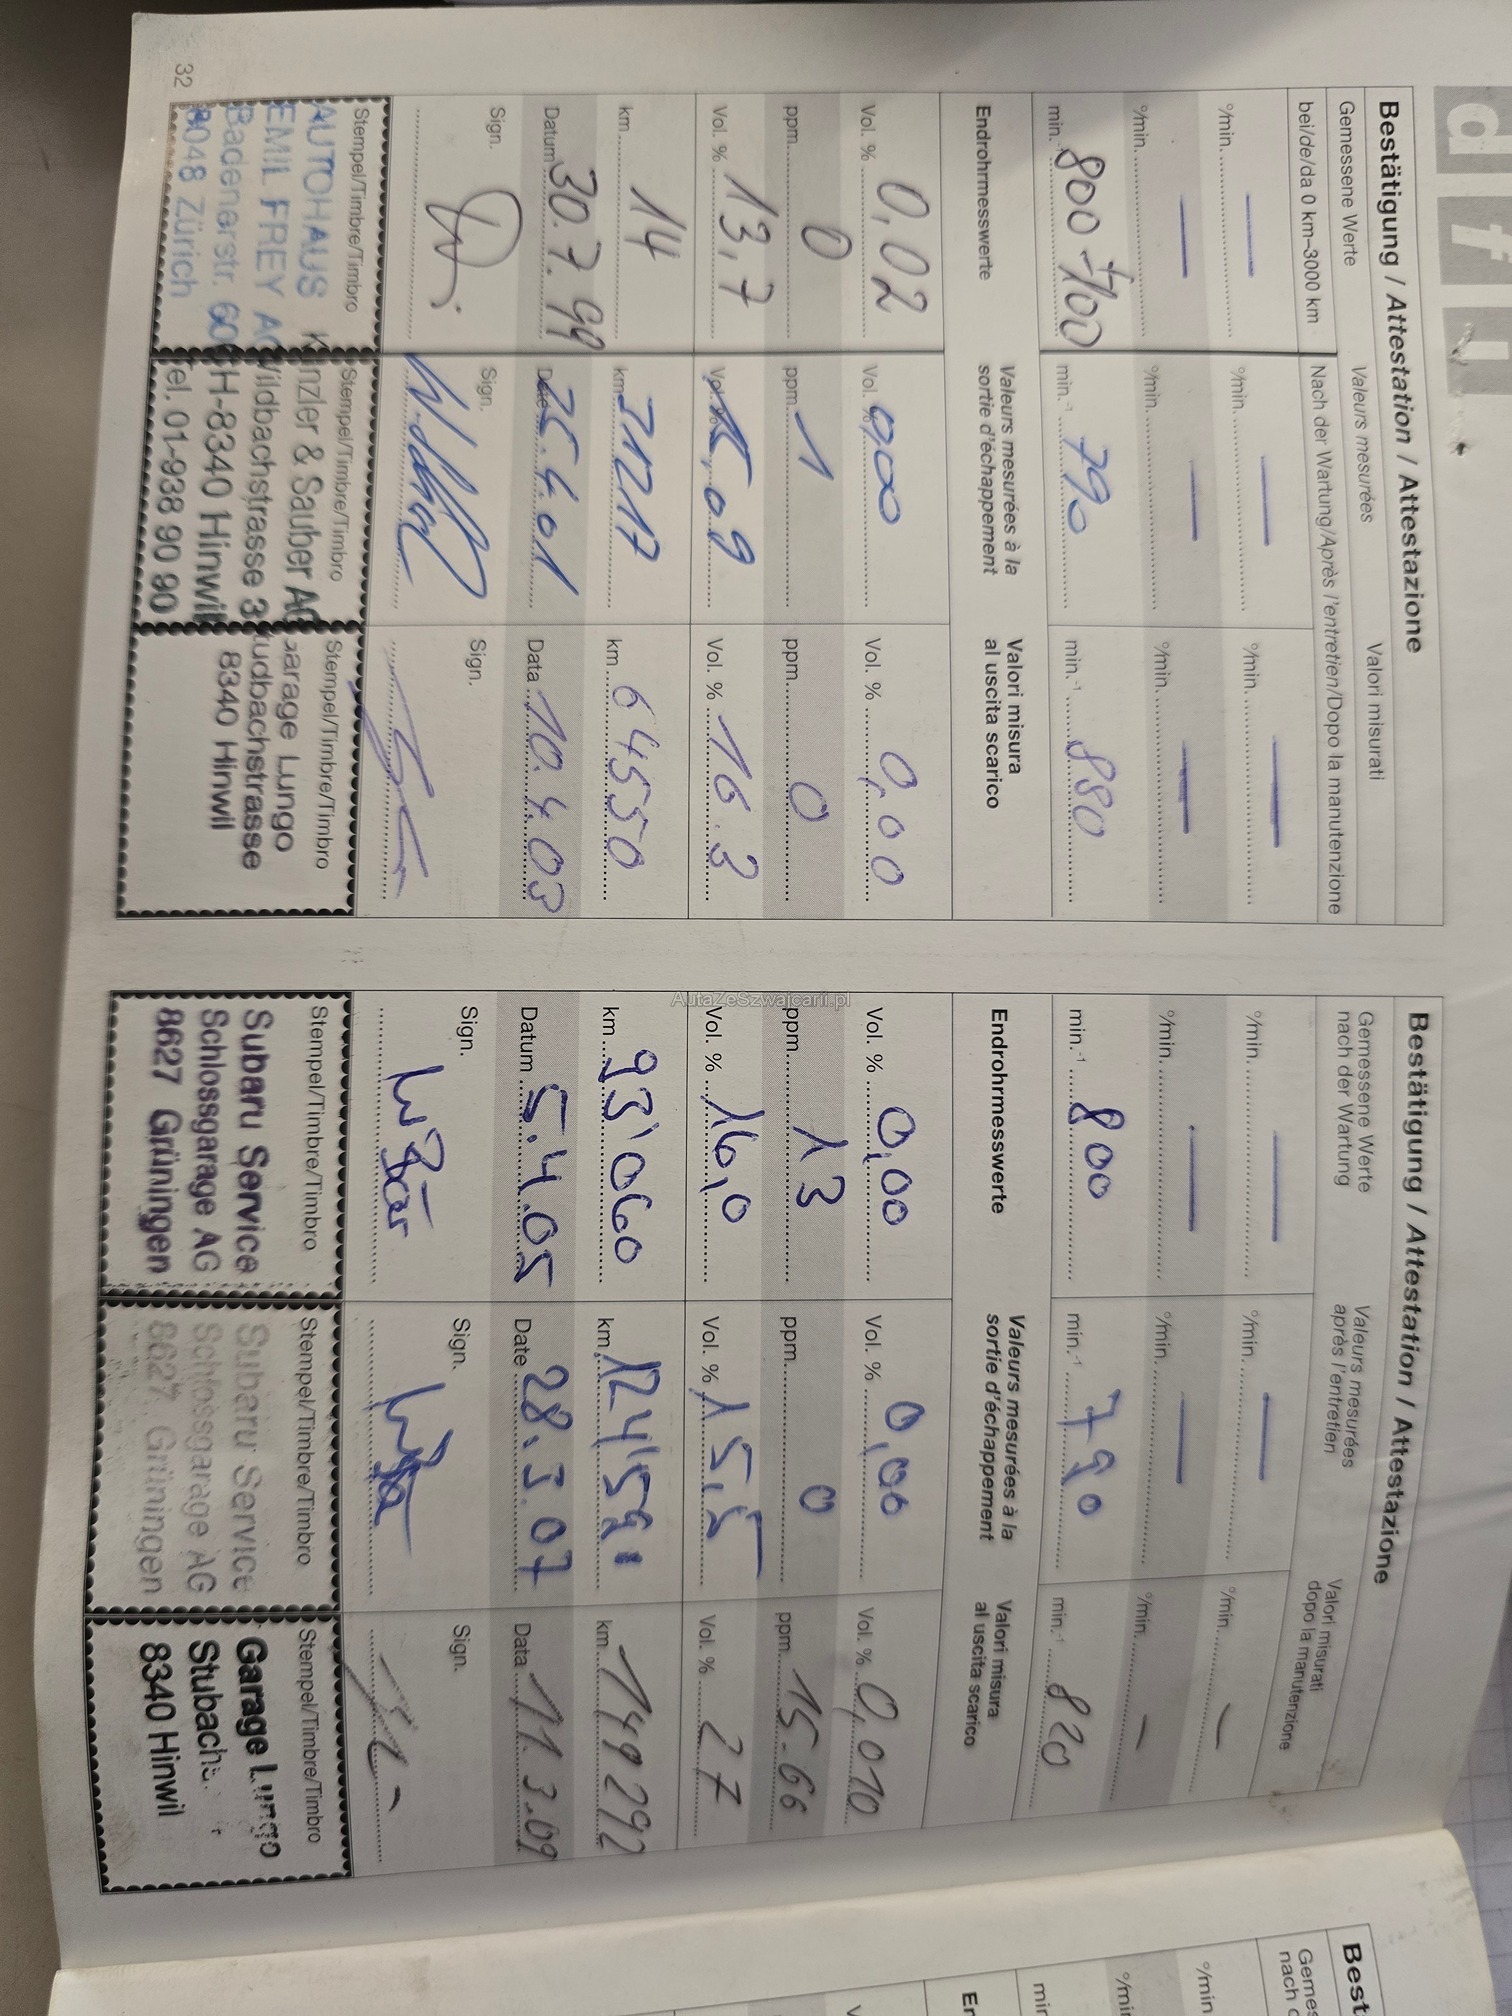 d f i
Bestätigung / Attestation / Attestazione
Gemessene Werte Valeurs mesurées Valori misurati
bei/de/da 0 km–3000 km Nach der Wartung/Après l'entretien/Dopo la manutenzione
°/min. — °/min. — °/min. —
°/min. — °/min. — °/min. —
min.⁻¹ 800 ± 100 min.⁻¹ 790 min.⁻¹ 880
Endrohrmesswerte Valeurs mesurées à la Valori misura
sortie d'échappement al uscita scarico
Vol. % 0,02 Vol. % 0,00 Vol. % 0,00
ppm 0 ppm 1 ppm 0
Vol. % 13,7 Vol. % 15,09 Vol. % 16.3
km 14 km 31217 km 64550
Datum 30.7.99 Date 25.4.01 Data 10.4.03
Sign. Sign. Sign.
Stempel/Timbre/Timbro Stempel/Timbre/Timbro Stempel/Timbre/Timbro
AUTOHAUS Künzler & Sauber AG Garage Lungo
EMIL FREY AG Wildbachstrasse 3 Studbachstrasse
Badenerstr. 600 CH-8340 Hinwil 8340 Hinwil
8048 Zürich Tel. 01-938 90 90
32
Bestätigung / Attestation / Attestazione
Gemessene Werte Valeurs mesurées Valori misurati
nach der Wartung après l'entretien dopo la manutenzione
°/min. — °/min. — °/min. —
°/min. — °/min. — °/min. —
min.⁻¹ 800 min.⁻¹ 790 min.⁻¹ 820
Endrohrmesswerte Valeurs mesurées à la Valori misura
sortie d'échappement al uscita scarico
Vol. % 0,00 Vol. % 0,00 Vol. % 0,010
ppm 13 ppm 0 ppm 15.66
Vol. % 16,0 Vol. % 15,5 Vol. % 27
km 93'060 km 124'591 km 149292
Datum 5.4.05 Date 28.3.07 Data 11.3.09
Sign. Sign. Sign.
Stempel/Timbre/Timbro Stempel/Timbre/Timbro Stempel/Timbre/Timbro
Subaru Service Subaru Service Garage Lungo
Schlossgarage AG Schlossgarage AG Stubachs
8627 Grüningen 8627 Grüningen 8340 Hinwil
AutaZeSzwajcarii.pl
Best
Gemes
nach d
°/min
°/min
min
En
V